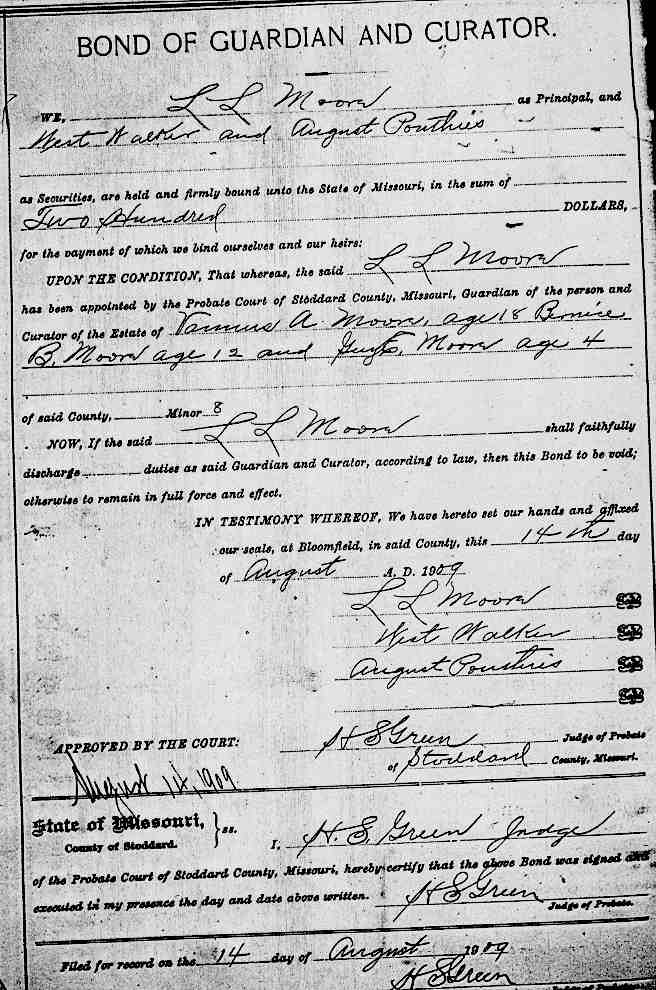 BOND OF GUARDIAN AND CURATOR.
WE, L L Moore as Principal, and
West Walker and August
as Securities, are held and firmly bound unto the State of Missouri, in the sum of
Two Hundred DOLLARS,
for the payment of which we bind ourselves and our heirs:
UPON THE CONDITION, That whereas, the said L L Moore
has been appointed by the Probate Court of Stoddard County, Missouri, Guardian of the person and
Curator of the Estate of A. Moore, age 18 Bernice
B. Moore age 12 and Moore age 4
of said County, Minor s
NOW, If the said L L Moore shall faithfully
discharge duties as said Guardian and Curator, according to law, then this Bond to be void;
otherwise to remain in full force and effect.
IN TESTIMONY WHEREOF, We have hereto set our hands and affixed
our seals, at Bloomfield, in said County, this 14th day
of August A. D. 1909
L L Moore
West Walker
August
APPROVED BY THE COURT: H S Green Judge of Probate
of Stoddard County, Missouri.
August 14, 1909
State of Missouri, } ss.
County of Stoddard. I, H. S. Green Judge
of the Probate Court of Stoddard County, Missouri, hereby certify that the above Bond was signed and
executed in my presence the day and date above written. H S Green
Judge of Probate.
Filed for record on the 14 day of August 1909
H S Green